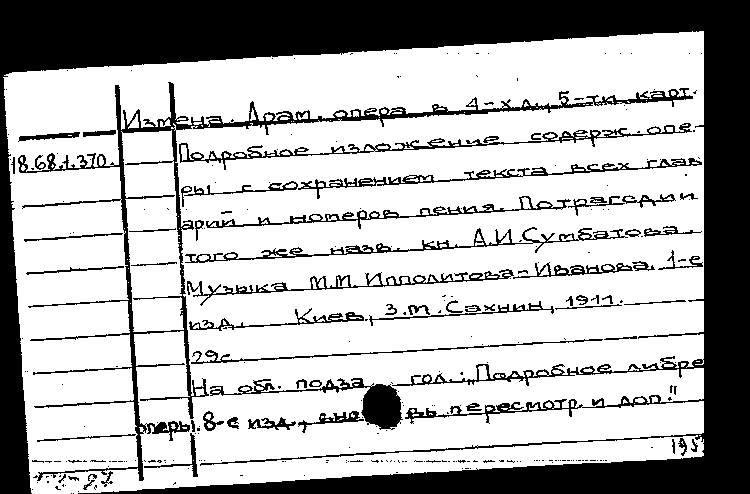 Измена. Драм. опера в 4-х д., 5-ти карт.
18.68.1.370. Подробное изложение содерж. опе-
ры с сохранением текста всех глав
арий и номеров пения. По трагедии
того же назв. кн. А.И.Сумбатова.
Музыка М.М. Ипполитова-Иванова. 1-е
изд. Киев, З.М. Сахнин, 1911.
29с.
На обл. подза гол.: „Подробное либре
оперы. 8-е изд., вно вь пересмотр. и доп."
195